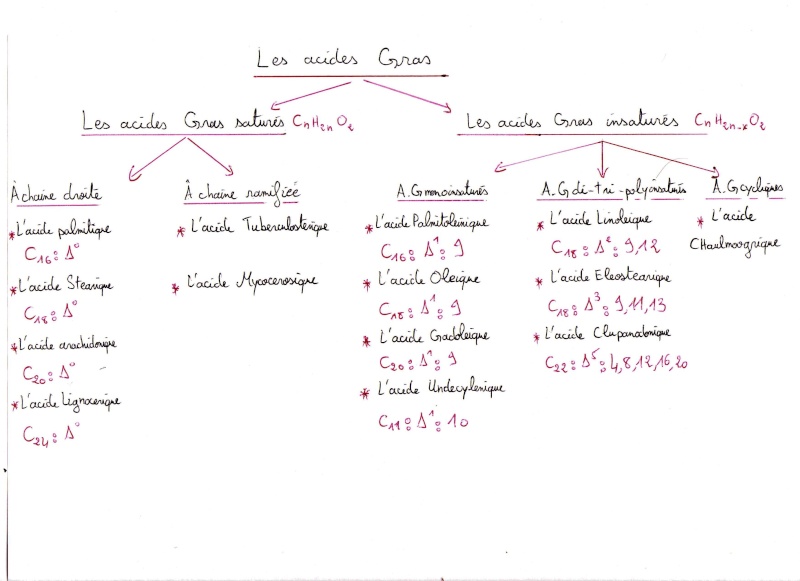 Les acides Gras
Les acides Gras saturés CnH2nO2
Les acides Gras insaturés CnH2n-xO2
À chaine droite
* L'acide palmitique
C16: Δ°
* L'acide Stearique
C18: Δ°
* L'acide arachidonique
C20: Δ°
* L'acide Lignocerique
C24: Δ°
À chaine ramifiée
* L'acide Tuberculosterique
* L'acide Mycocerosique
A.G monoinsaturés
* L'acide Palmitoleinique
C16: Δ1: 9
* L'acide Oleique
C18: Δ1: 9
* L'acide Gadoleique
C20: Δ1: 9
* L'acide Undecylenique
C11: Δ1: 10
A.G di-tri-polyinsaturés
* L'acide Linoleique
C18: Δ2: 9,12
* L'acide Eleostearique
C18: Δ3: 9,11,13
* L'acide Clupanodonique
C22: Δ5: 4,8,12,16,20
A.G cycliques
* L'acide
CHaulmoogrique